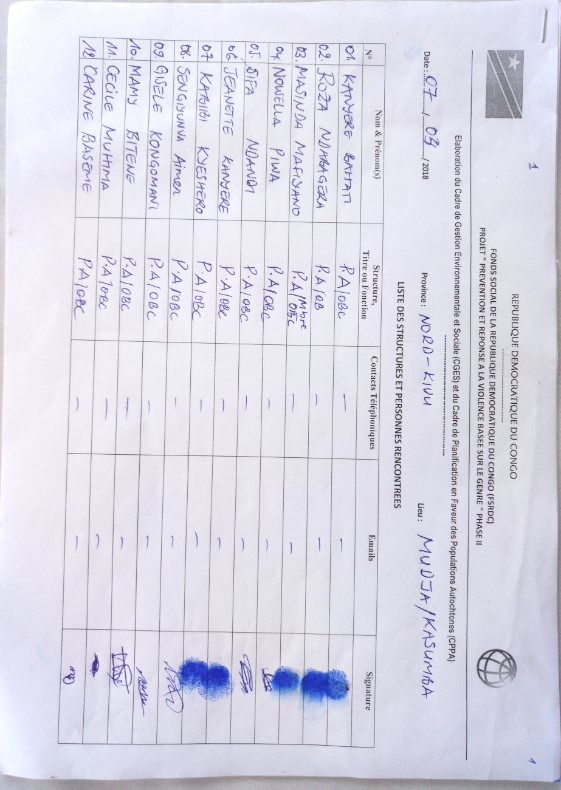 1
1
REPUBLIQUE DEMOCRATIQUE DU CONGO
FONDS SOCIAL DE LA REPUBLIQUE DEMOCRATIQUE DU CONGO (FSRDC)
PROJET " PREVENTION ET REPONSE A LA VIOLENCE BASEE SUR LE GENRE " PHASE II
Elaboration du Cadre de Gestion Environnementale et Sociale (CGES) et du Cadre de Planification en Faveur des Populations Autochtones (CPPA)
Date : 07 / 03 / 2018 Province : NORD-KIVU Lieu : MUDJA/KASUMBA
LISTE DES STRUCTURES ET PERSONNES RENCONTREES
N° Nom & Prénom(s) Structure, Titre ou Fonction Contacts Téléphoniques Emails Signature
01. KANYERE BAHATI P.A/OBC — —
02. ROZA NDABAGERA P.A/OB — —
03. MASINDA MAFIYANO P.A/Mbre OBC — —
04. NOWELLA PIWA P.A/OBC — —
05. DIFA NDANDI P.A/OBC — —
06. JEANETTE KANYERE P.A/OBC — —
07 KATSIBI KYESHERO P.A/OBC — —
08. SENGIYUNVA Aimée P.A/OBC — —
09. GISELE KONGOMANI P.A/OBC — —
10. MAMY BITENE P.A/OBC — —
11. CECILE MUHIMA P.A/OBC — —
12 CARINE BASEME P.A/OBC — —